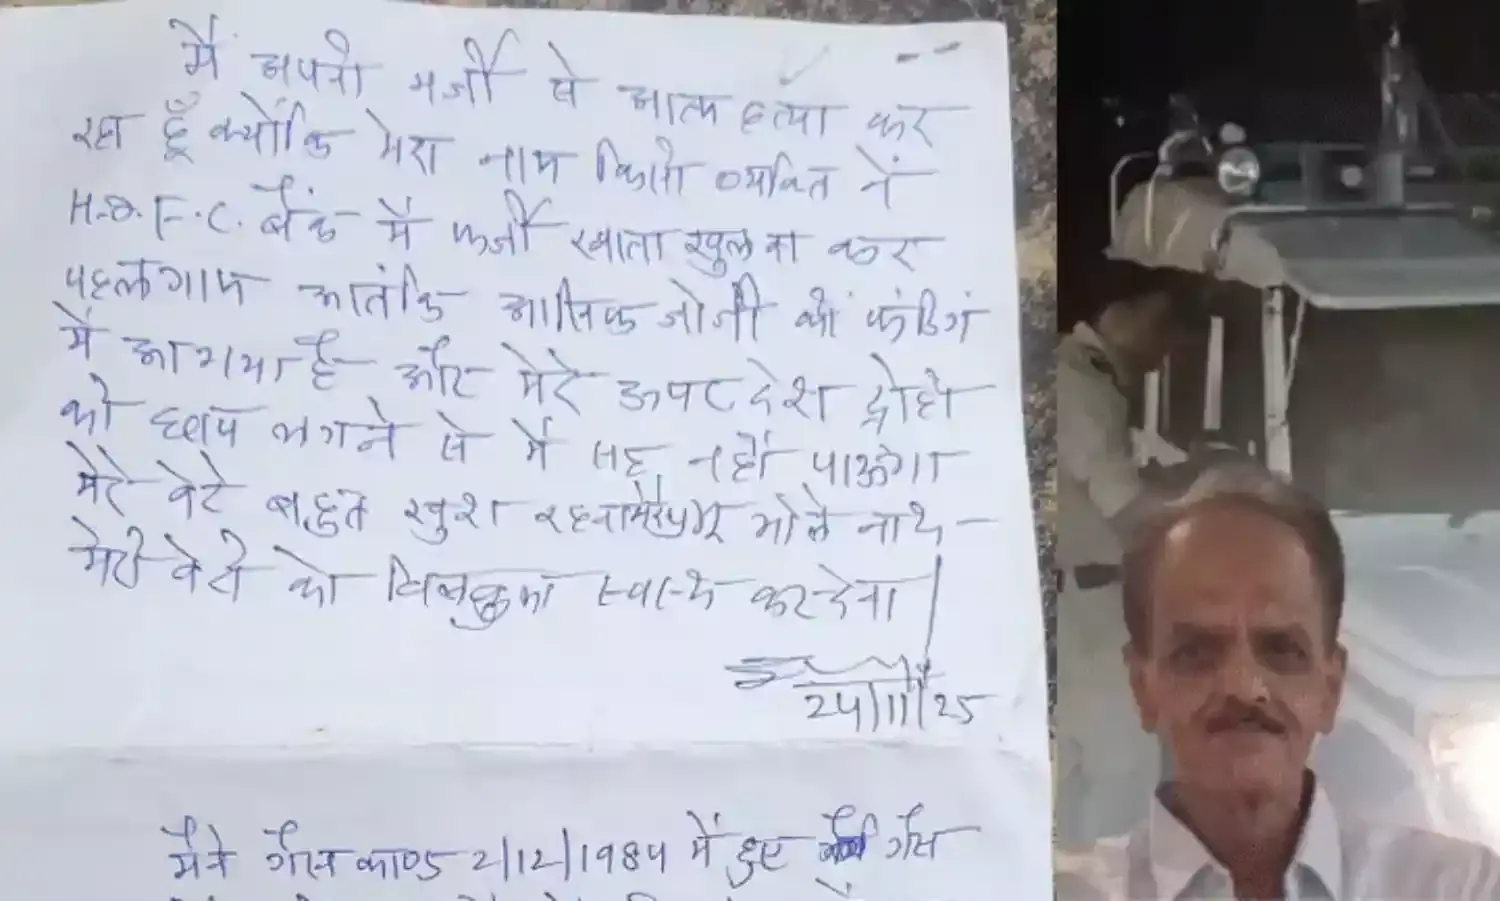 मैं अपनी मर्जी से आत्म हत्या कर
रहा हूँ क्योंकि मेरा नाम किसी व्यक्ति ने
H.D.F.C. बैंक में फर्जी खाता खुलवा कर
पहलगाम आतंकि आसिफ जोजी की फंडिगं
में आ गया है और मेरे ऊपर देश द्रोही
की छाप लगने से में सह नहीं पाऊंगा
मेरे बेटे बहुत खुश रहना मेरे प्रभु भोले नाथ -
मेरी बेटी को बिलकुल स्वस्थ कर देना
24/11/25
मैने गैस काण्ड 2/12/1984 में हुए गैस